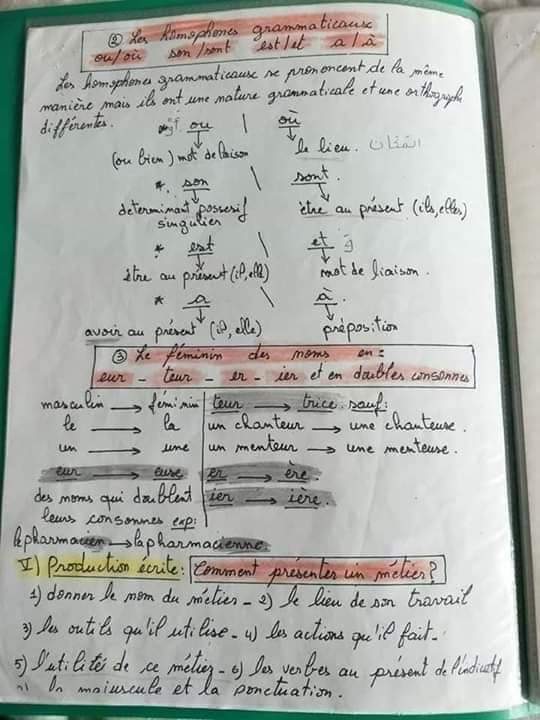 ② Les homophones grammaticaux
ou/où son/sont est/et a/à
Les homophones grammaticaux se prononcent de la même
manière mais ils ont une nature grammaticale et une orthographe
différentes.
* ou \ où
(ou bien) mot de laison le lieu.
* son \ sont.
determinant possesif être au présent (ils, elles)
singulier
* est \ et و
être au présent (il, elle) mot de liaison.
* a \ à.
avoir au présent (il, elle) préposition
③ Le féminin des noms en :
eur - teur - er - ier et en doubles consonnes
masculin → féminin teur → trice. sauf:
le → la un chanteur → une chanteuse.
un → une un menteur → une menteuse.
eur → euse er → ère.
des noms qui doublent ier → ière.
leurs consonnes exp:
le pharmacien → la pharmacienne
V) Production écrite: Comment présenter un métier?
1) donner le nom du métier - 2) le lieu de son travail
3) les outils qu'il utilise - 4) les actions qu'il fait -
5) l'utilité de ce métier - 6) les verbes au présent de l'indicatif
la majuscule et la ponctuation.